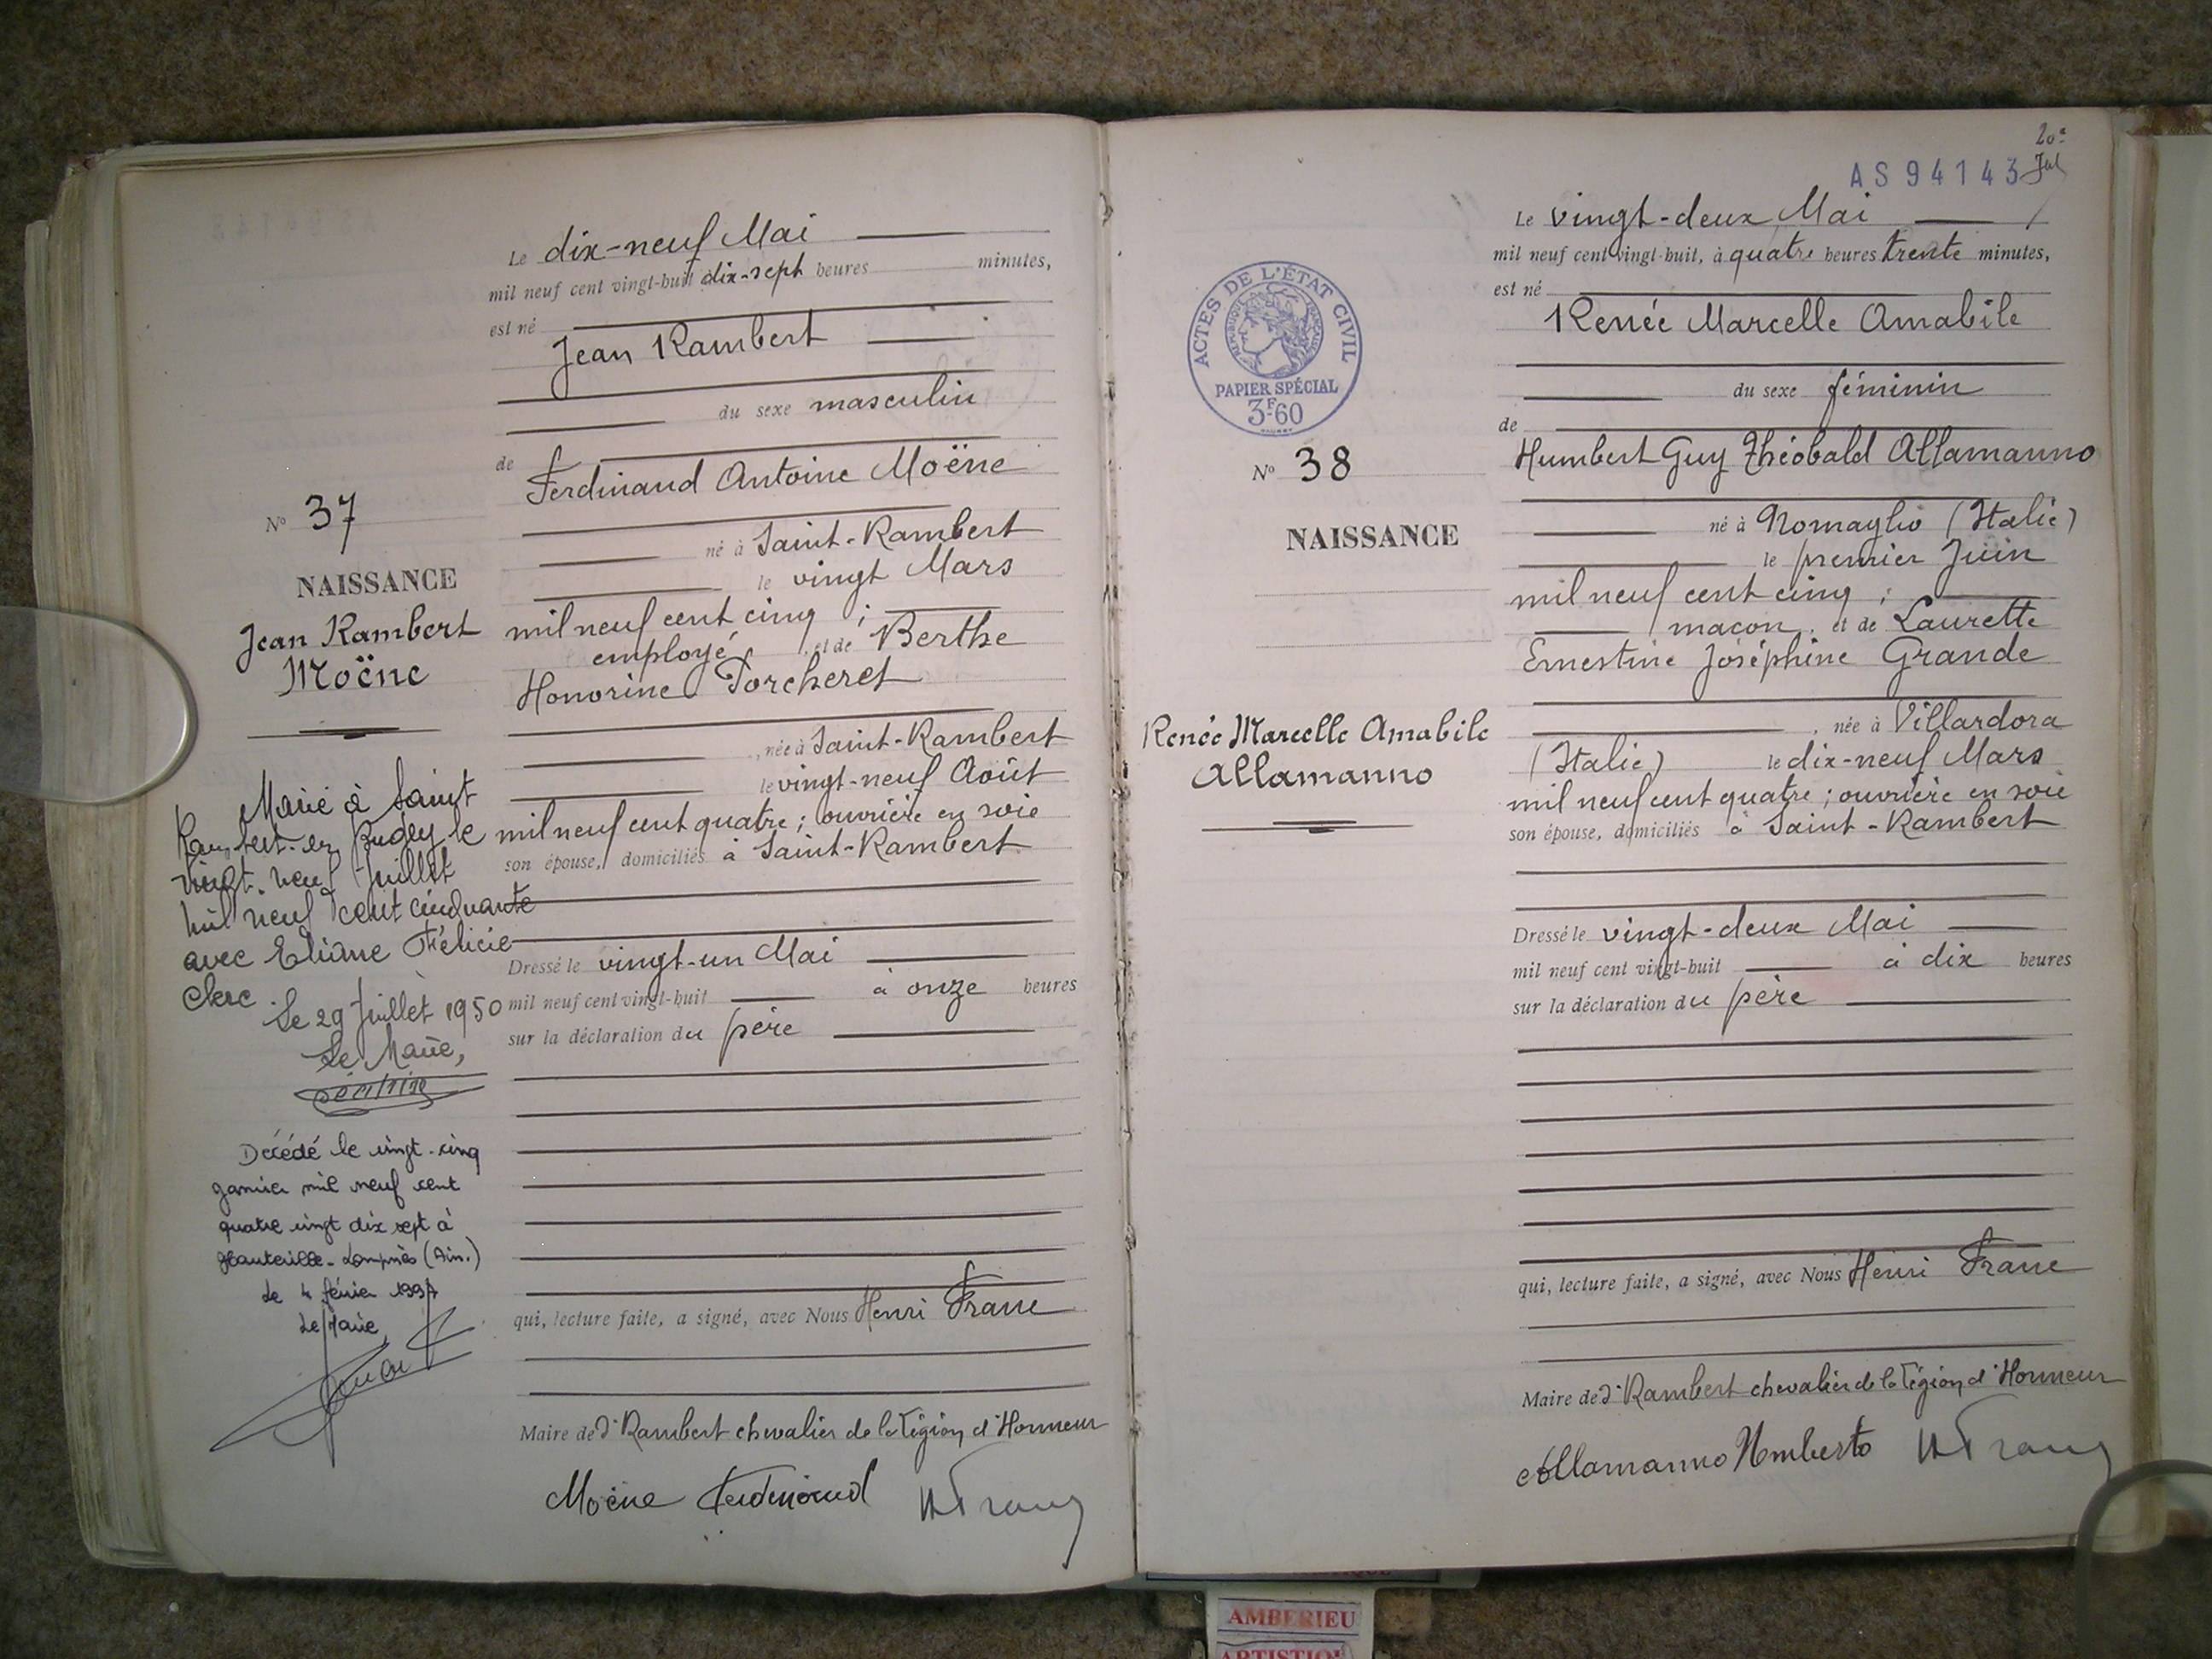 Le dix-neuf Mai
mil neuf cent vingt-huit à dix-sept heures minutes,
est né
Jean Rambert
du sexe masculin
de
Ferdinand Antoine Moëne
né à Saint-Rambert
le vingt Mars
mil neuf cent cinq ;
employé, et de Berthe
Honorine Porcheret
, née à Saint-Rambert
le vingt-neuf Août
mil neuf cent quatre ; ouvrière en soie
son épouse, domiciliés à Saint-Rambert
Dressé le vingt-un Mai
mil neuf cent vingt-huit à onze heures
sur la déclaration du père
qui, lecture faite, a signé, avec Nous Henri Franc
Maire de St Rambert chevalier de la Légion d'Honneur
Moëne Ferdinand HFranc
No 37
NAISSANCE
Jean Rambert
Moëne
Marié à Saint
Rambert-en-Bugey le
vingt-neuf Juillet
mil neuf cent cinquante
avec Eliane Félicie
Clerc.
Le 29 Juillet 1950
Le Maire,
Décédé le vingt-cinq
janvier mil neuf cent
quatre vingt dix sept à
Hauteville-Lompnès (Ain.)
Le 4 février 1997
Le Maire
20e
AS 94143
Le vingt-deux Mai
mil neuf cent vingt-huit, à quatre heures trente minutes,
est né
Renée Marcelle Amabile
du sexe féminin
de
Humbert Guy Théobald Allamanno
né à Nomaglio (Italie)
le premier Juin
mil neuf cent cinq ;
maçon, et de Laurette
Ernestine Joséphine Grande
, née à Villardora
(Italie) le dix-neuf Mars
mil neuf cent quatre ; ouvrière en soie
son épouse, domiciliés à Saint-Rambert
Dressé le vingt-deux Mai
mil neuf cent vingt-huit à dix heures
sur la déclaration du père
qui, lecture faite, a signé, avec Nous Henri Franc
Maire de St Rambert chevalier de la Légion d'Honneur
Allamanno Umberto HFranc
ACTES DE L'ÉTAT CIVIL
RÉPUBLIQUE FRANÇAISE
PAPIER SPÉCIAL
3F60
No 38
NAISSANCE
Renée Marcelle Amabile
Allamanno
AMBERIEU